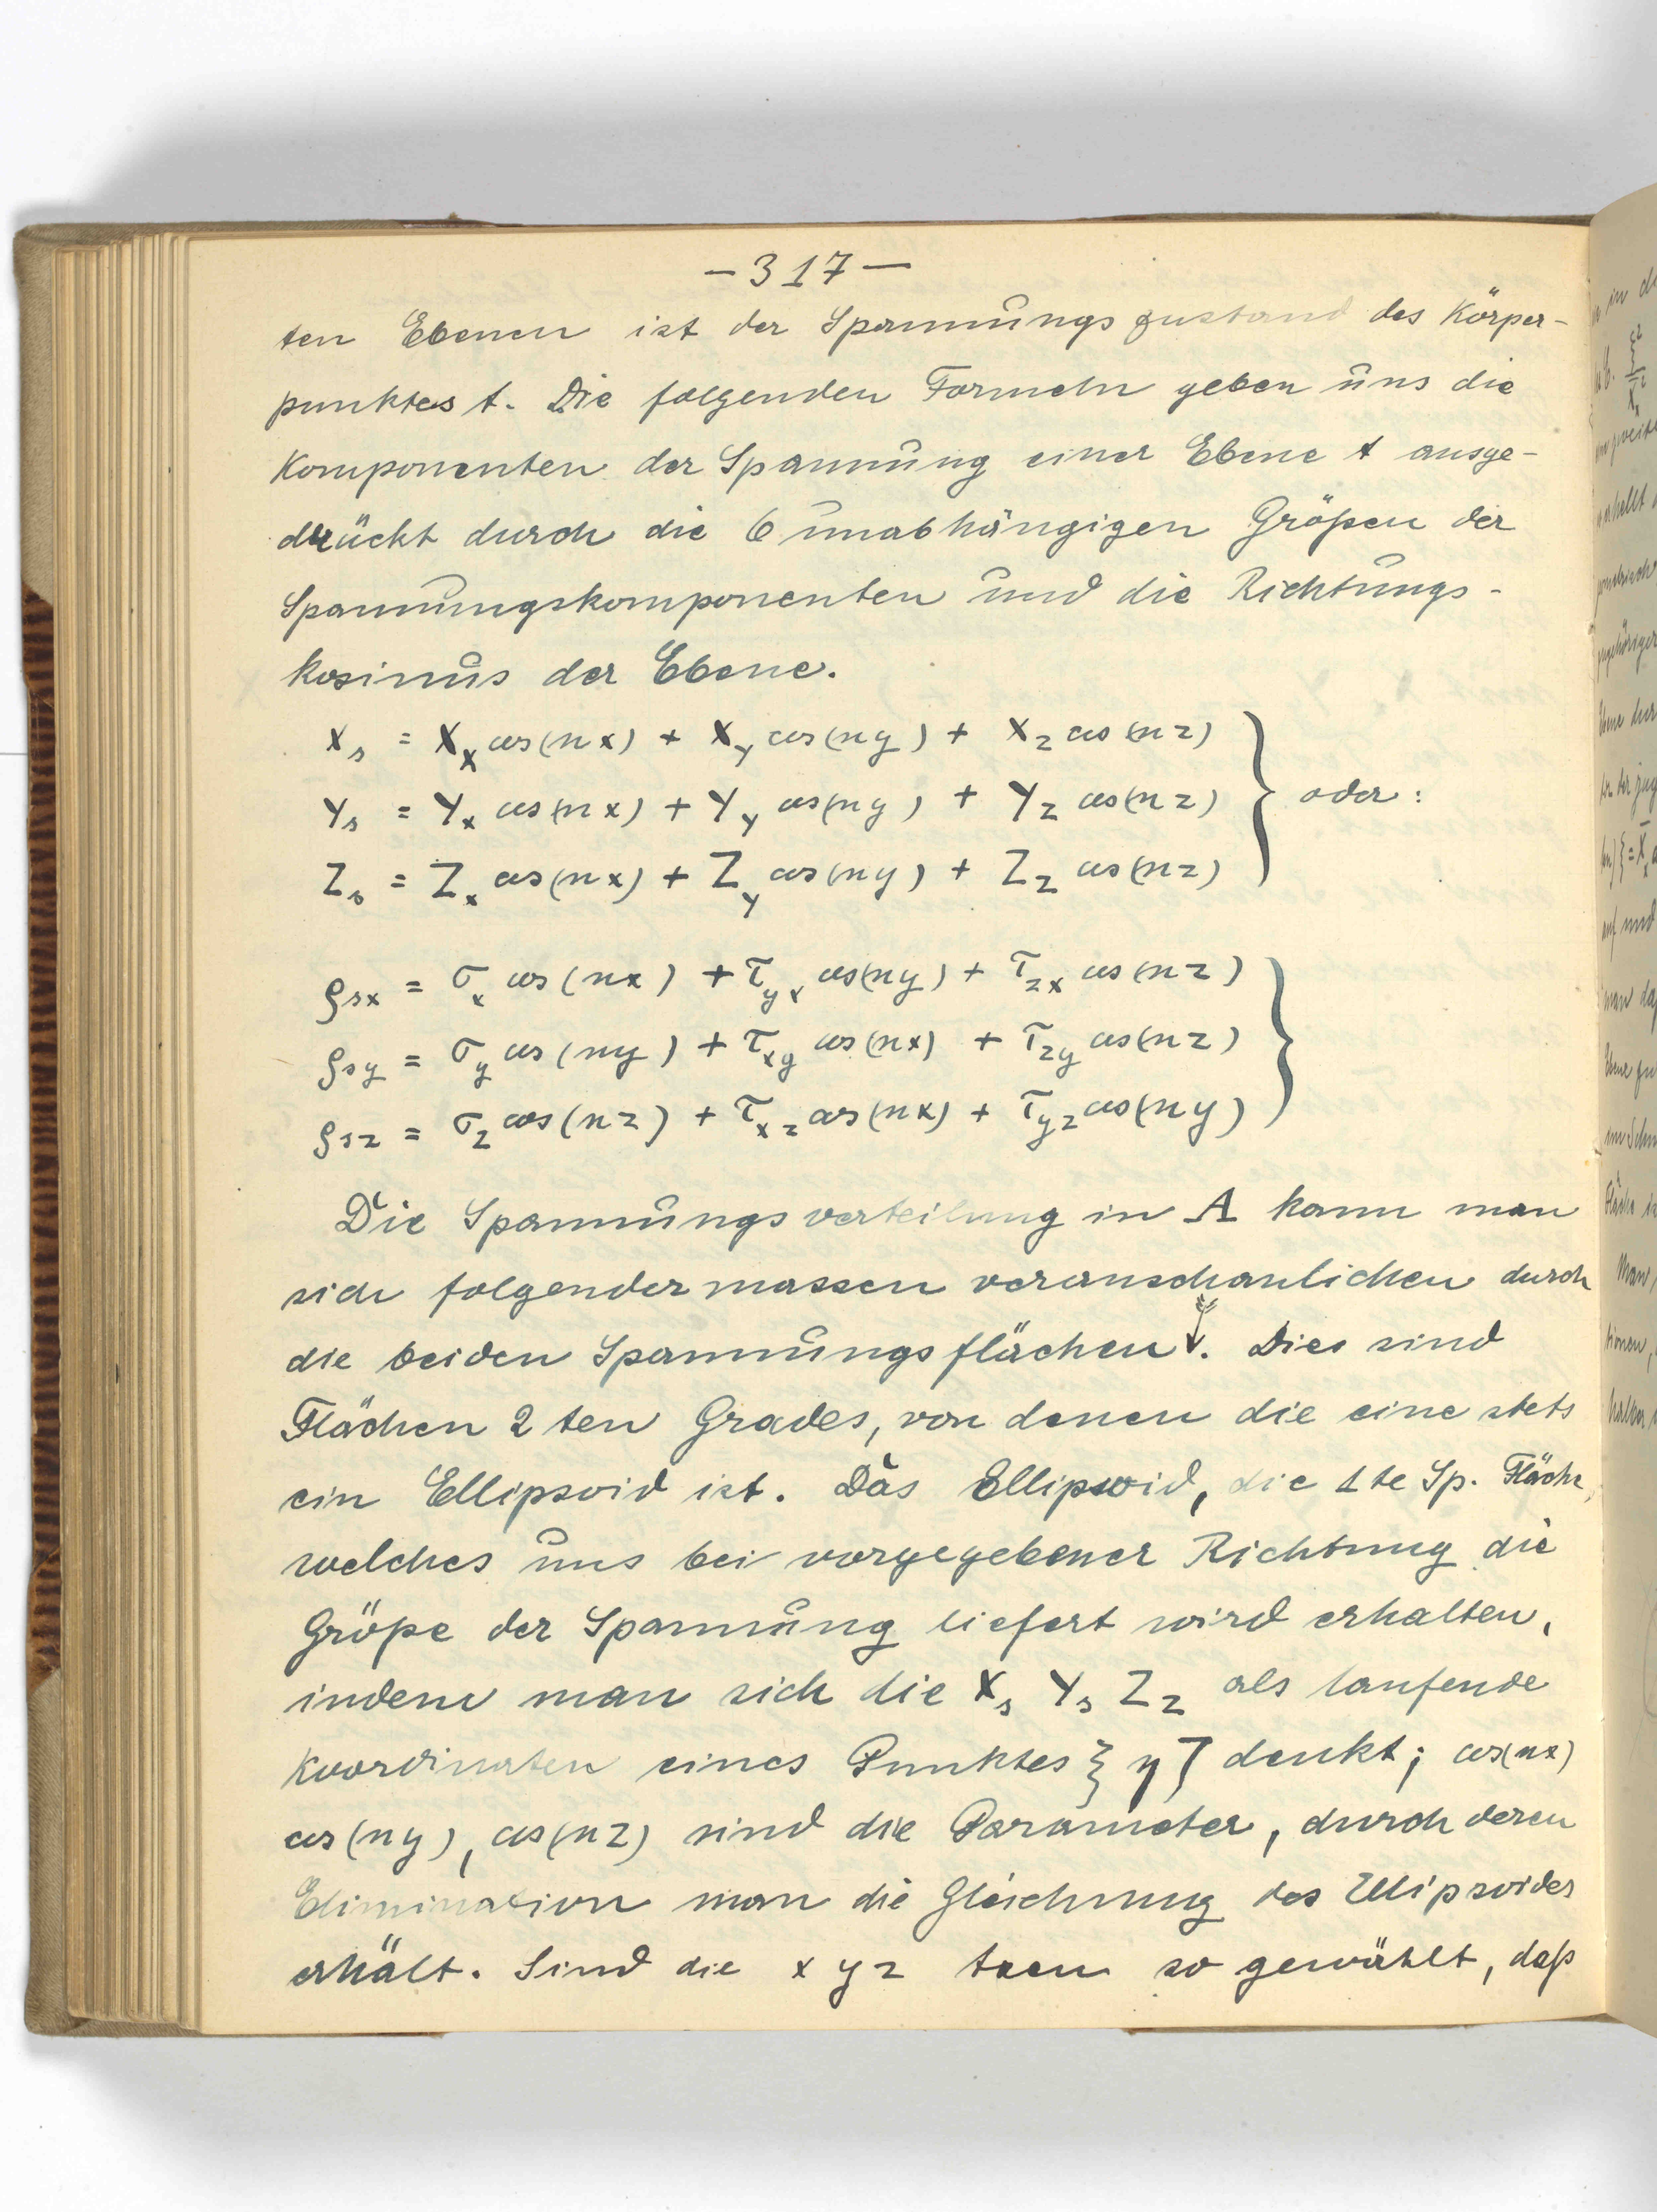 – 317 –
ten Ebenen ist der Spannungszustand des Körper-
punktes t. Die folgenden Formeln geben uns die
Komponenten der Spannung einer Ebene t ausge-
drückt durch die 6 unabhängigen Größen der
Spannungskomponenten und die Richtungs-
kosinus der Ebene.
X_s = X_x cos(nx) + X_y cos(ny) + X_z cos(nz)
Y_s = Y_x cos(nx) + Y_y cos(ny) + Y_z cos(nz) } oder:
Z_s = Z_x cos(nx) + Z_y cos(ny) + Z_z cos(nz)
ϱ_sx = σ_x cos(nx) + τ_yx cos(ny) + τ_zx cos(nz)
ϱ_sy = σ_y cos(ny) + τ_xy cos(nx) + τ_zy cos(nz) }
ϱ_sz = σ_z cos(nz) + τ_xz cos(nx) + τ_yz cos(ny)
Die Spannungsverteilung in A kann man
sich folgendermassen veranschaulichen durch
die beiden Spannungsflächen. Dies sind
Flächen 2ten Grades, von denen die eine stets
ein Ellipsoid ist. Das Ellipsoid, die 1te Sp. Fläche,
welches uns bei vorgegebener Richtung die
Größe der Spannung liefert wird erhalten,
indem man sich die X_s Y_s Z_z als laufende
Koordinaten eines Punktes ξ η ζ denkt; cos(nx)
cos(ny), cos(nz) sind die Parameter, durch deren
Elimination man die Gleichung des Ellipsoides
erhält. Sind die x y z so gewählt, daß